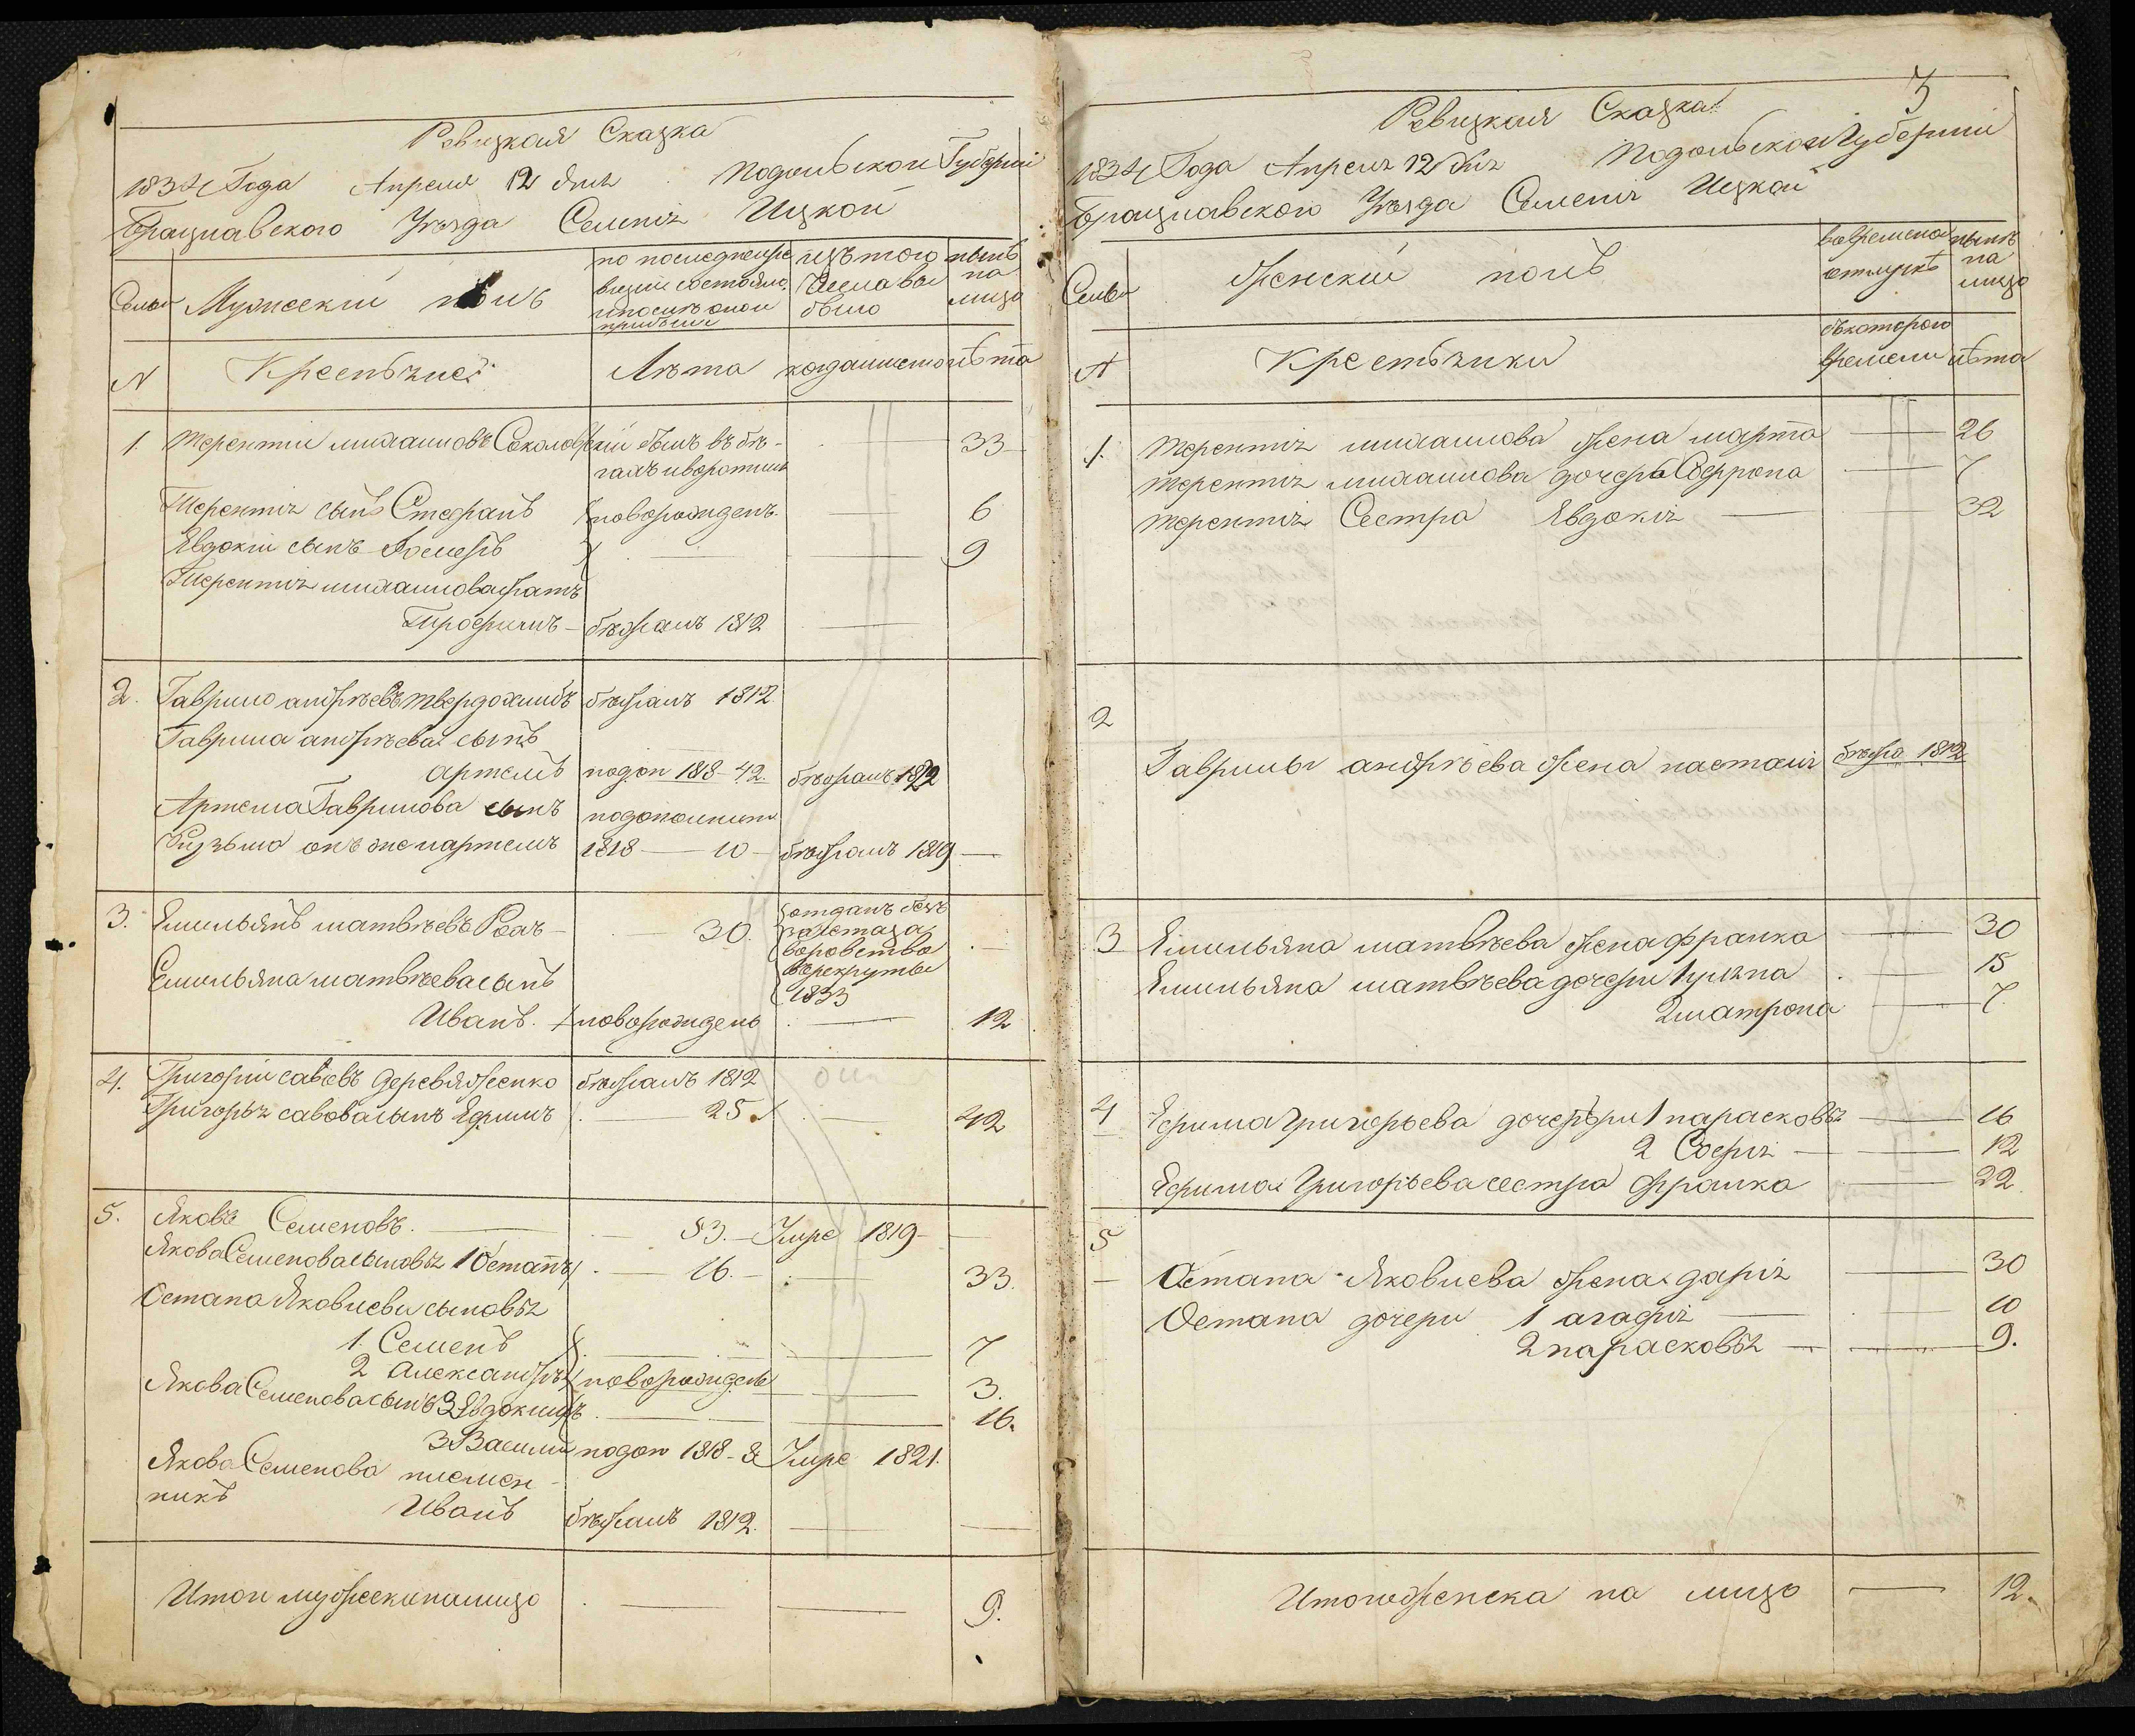 Ревизкая Сказка
1834 Года Апреля 12 дня Подольской Губернiи
Брацлавского Уѣзда Селенiя Ицкой
Семьи
Мужескiй полъ
по последней ре
визiи состояло
и после оной
прибыло
изъ того
числа вы
было
нынѣ
на
лицо
N
Крестьяне
Лѣта
когда имено
лѣта
1. Терентiй Соколовскiй былъ въ бѣ- 33
гахъ и воротился
Терентiя сынъ Стефанъ новорожденъ 6
Явдокiи сынъ 9
Терентiя братъ
Трофимъ – бѣжалъ 1812
2. Гаврило андрѣевъ твердохлибъ бѣжалъ 1812
Гаврила андрѣева сынъ
артемъ подоп 1818 – 42. бѣжалъ 1822
Артема Гаврилова сынъ подополнит
Кузьма онъ же артемъ 1818 – 10 – бѣжалъ 1819 –
3. Емильянъ матвѣевъ – 30. отданъ безъ
зачета за
воровство
въ рекруты
1833
Емильяна матвѣева сынъ
Иванъ. новорожденъ 12
4. Григорiй савовъ деревяженко бѣжалъ 1812
Григорья савова сынъ Ефимъ 25. 42
5. Яковъ Семеновъ. 53. – Умре 1819 –
Якова Семенова сыновья 1 Остапъ 16. – 33.
Остапа Яковлева сыновья
1. Семенъ 7
2 александръ новорожденъ 3.
Якова Семенова сынъ 2 Явдокимъ 16.
3 Василiй подоп 1818 – 8 Умре 1821.
Якова Семенова племян-
никъ
Иванъ бѣжалъ 1812.
Итого мужеска на лицо 9.
3
Ревизкая Сказка
1834 Года Апреля 12 дня Подольской Губернiи
Брацлавского Уѣзда Селенiя Ицкой
Семьи
женскiй полъ
во временной
отлучкѣ
нынѣ
на
лицо
N
Крестьянки
съ которого
времени
лѣта
1. Терентiя жена марта 26
Терентiя дочерь 7
Терентiя Сестра Явдокiя 32
2
Гаврилы андрѣева жена настасiя бѣжа 1812
3 Емильяна матвѣева жена франка 30
Емильяна матвѣева дочери 1 улiяна 15
2 матрона 7.
4 Ефима Григорьева дочери 1 парасковья 16
2 Софiя 12
Ефима Григорьева сестра франка 22
5
Остапа Яковлева жена дарiя 30
Остапа дочери 1 агафiя 10
2 парасковья 9.
Итого женска на лицо 12.